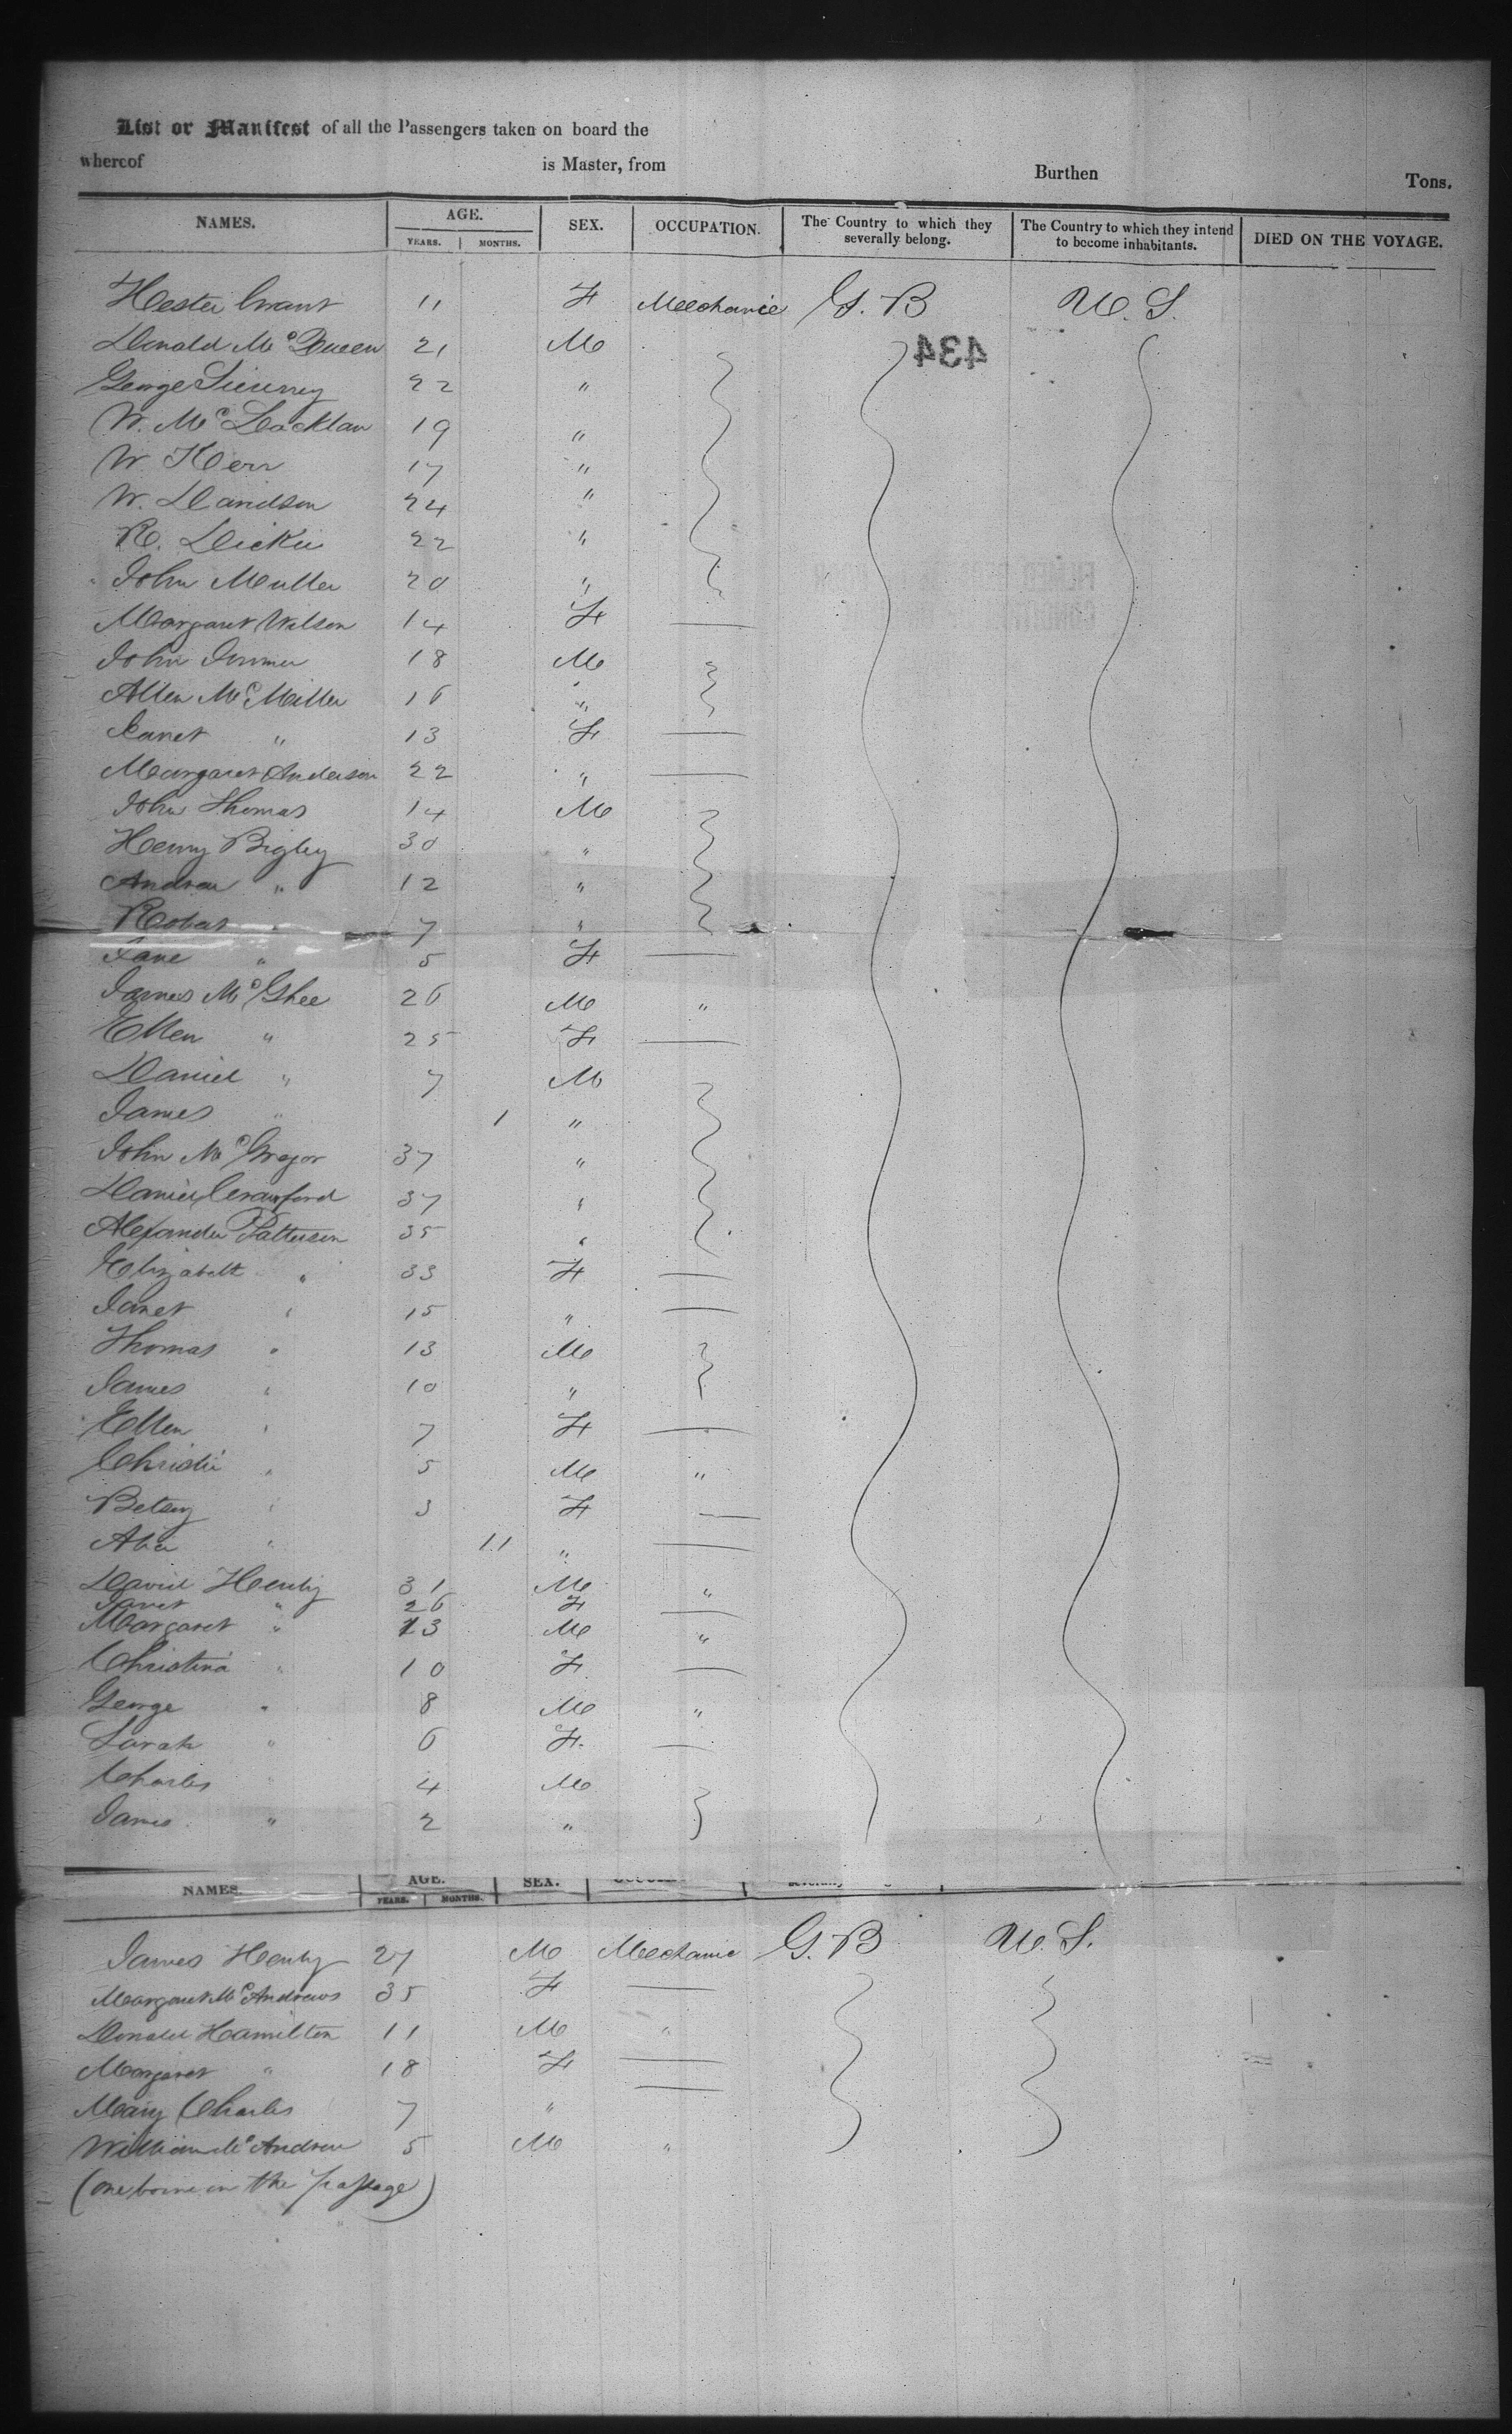 List or Manifest of all the Passengers taken on board the
whereof is Master, from Burthen Tons.
NAMES. AGE. SEX. OCCUPATION. The Country to which they severally belong. The Country to which they intend to become inhabitants. DIED ON THE VOYAGE.
YEARS. MONTHS.
Hester Grant 11 F Mechanic G. B U. S.
Donald McQueen 21 M
434
George 22 "
W. McLacklan 19 "
W. Kerr 17 "
W. Davidson 24 "
R. Dickie 22 "
John Muller 20 "
Margaret Wilson 14 F —
John 18 M
Allen McMiller 16 "
Janet " 13 F —
Margaret Anderson 22 " —
John Thomas 14 M
Henry Bigley 30 "
Andrew " 12 "
Robert " 7 "
Jane " 5 F —
James McGhee 26 M "
Ellen " 25 F —
Daniel " 7 M
James " 1 "
John McGregor 37 "
Daniel Crawford 37 "
Alexander Patterson 35 "
Elizabeth " 33 F —
Janet " 15 " —
Thomas " 13 M
James " 10 "
Ellen " 7 F —
Christie " 5 M "
Betsy " 3 F —
" 11 " —
David Henby 31 M "
Janet " 26 F —
Margaret " 13 M "
Christina " 10 F —
George " 8 M "
Sarah " 6 F. —
Charles " 4 M
James " 2 "
NAMES. AGE. SEX.
YEARS. MONTHS.
James Henby 27 M Mechanic G. B U. S.
Margaret McAndrews 35 F —
Donald Hamilton 11 M "
Margaret " 18 F —
Mary Charles 7 " —
William McAndrew 5 M "
(one borne on the passage)